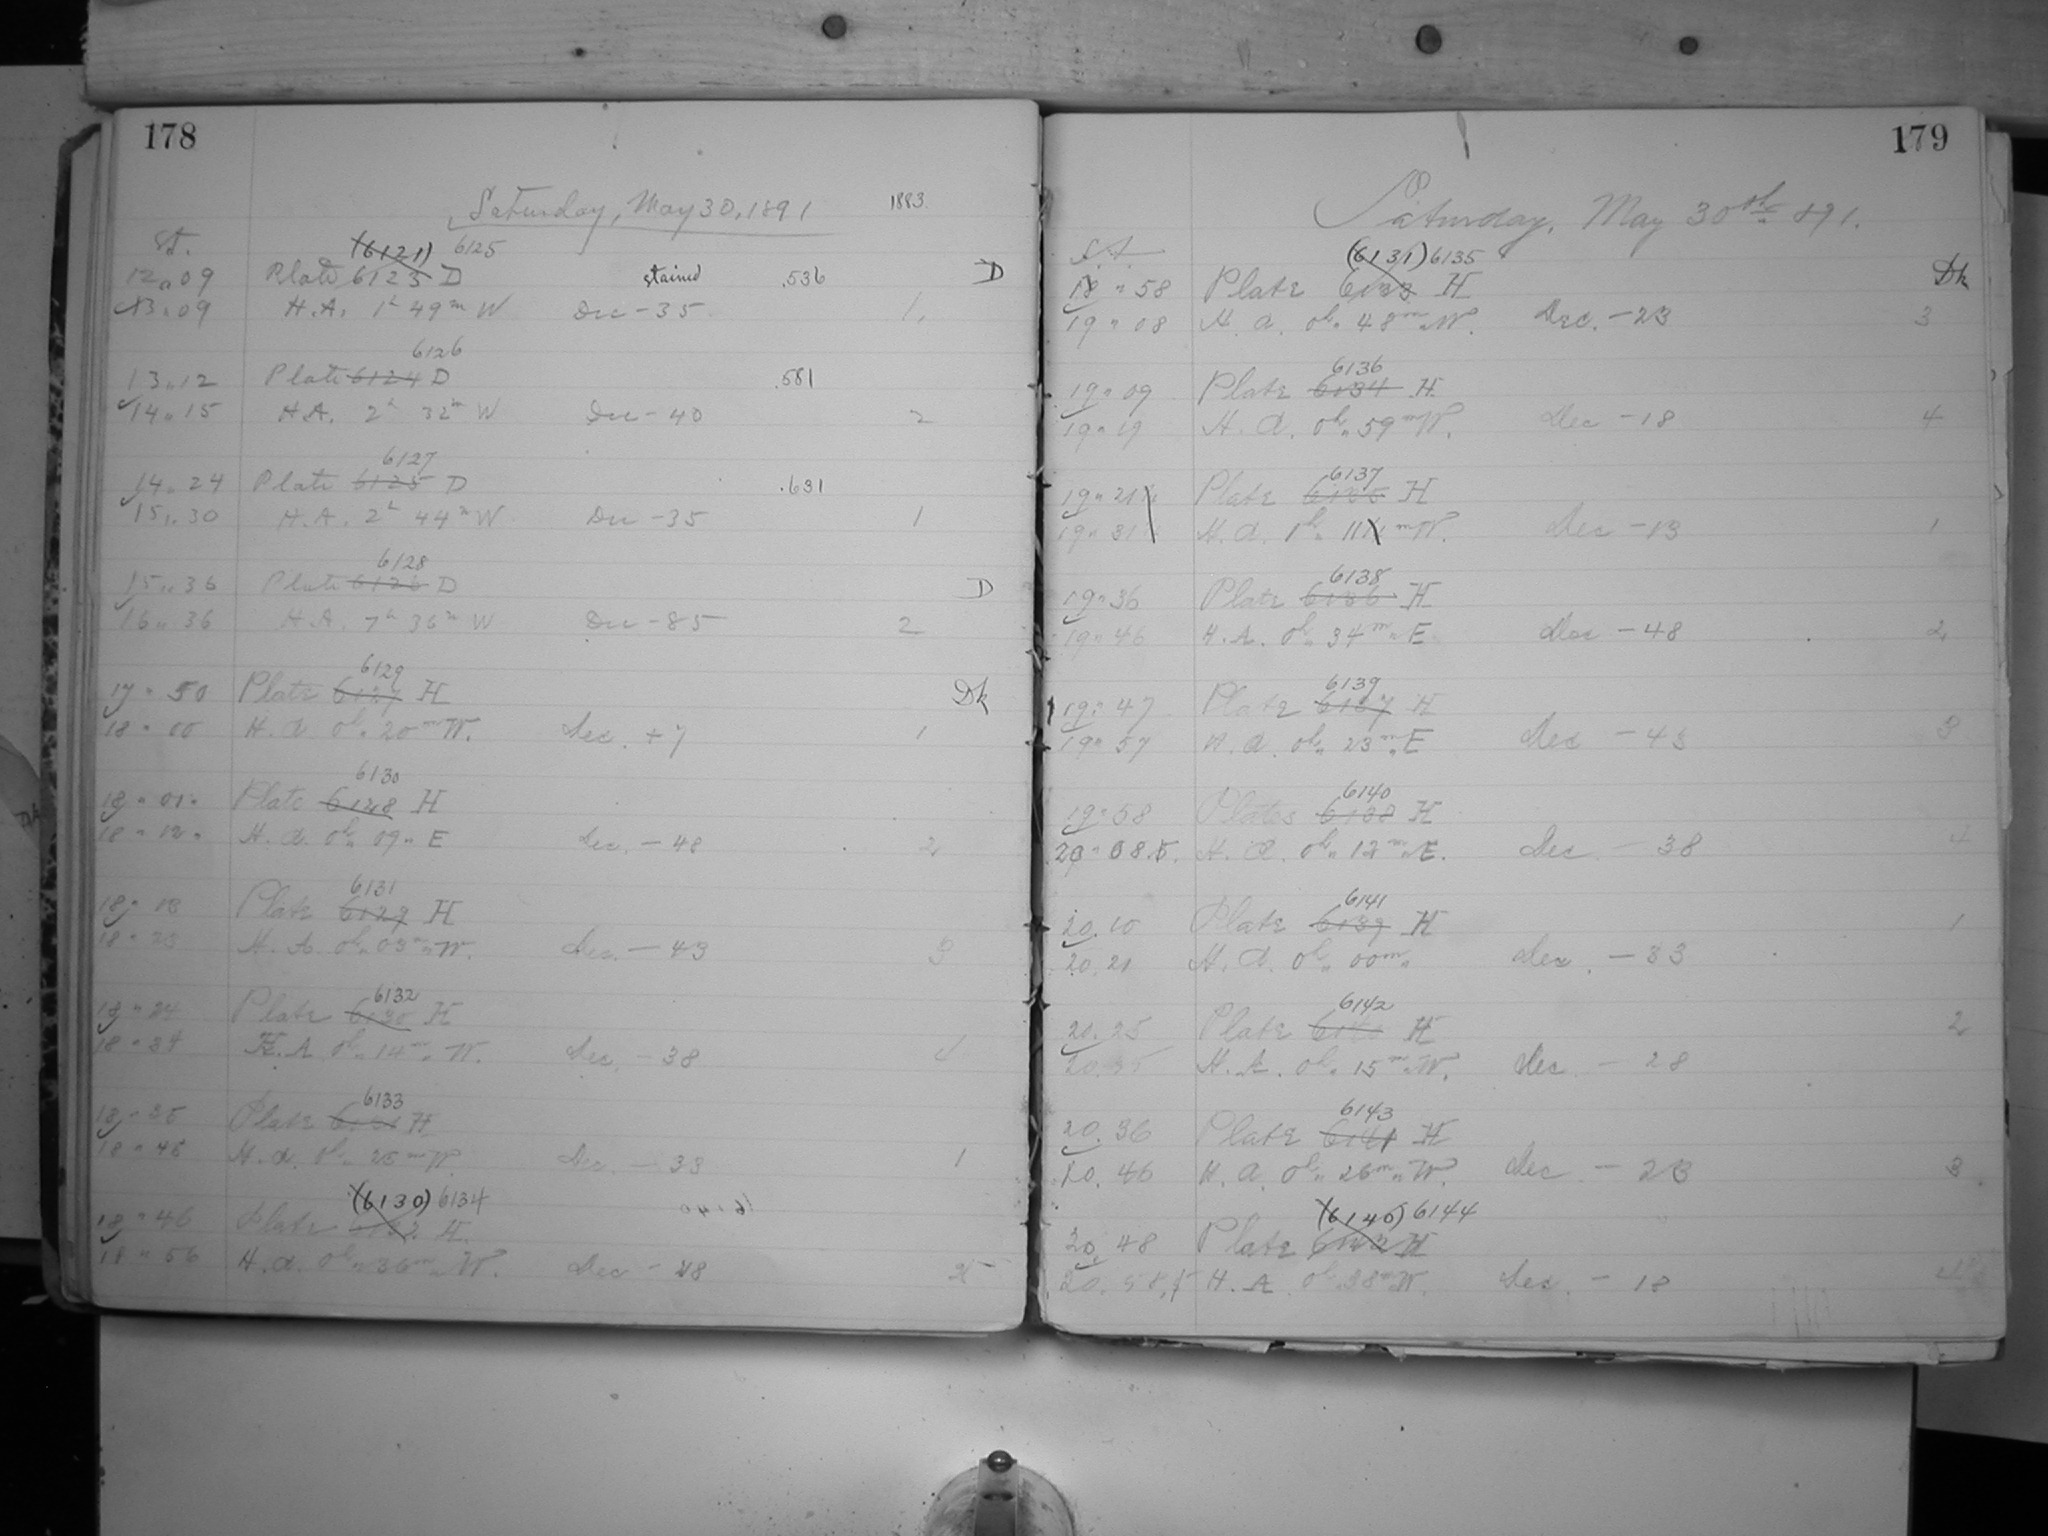 178
Saturday, May 30, 1891 1883.
St.
(6121) 6125
12 09 Plate 6123 D stained .536 D
13 09 H.A. 1h 49m W Dec - 35 1.
6126
13 12 Plate 6124 D .581
14 15 H.A. 2h 32m W Dec - 40 2
6127
14 24 Plate 6125 D .631
15 30 H.A. 2h 44m W Dec - 35 1
6128
15 36 Plate 6126 D D
16 36 H.A. 7h 36m W Dec - 85 2
6129
17 50 Plate 6127 H Dk
18 00 H.A. 0h 20m W. Dec. + 7 1
6130
18 01 Plate 6128 H
18 12 H.A. 0h 09 E Dec. - 48 2
6131
18 13 Plate 6129 H
18 23 H.A. 0h 03m W. Dec. - 43 3
6132
18 24 Plate 6130 H
18 34 H.A. 0h 14m W. Dec. - 38 4
6133
18 35 Plate 6131 H
18 45 H.A. 0h 25m W. Dec. - 33 1
(6130) 6134
18 46 Plate 6132 H.
18 56 H.A. 0h 36m W. Dec - 28
179
Saturday, May 30th 1891.
S.T.
(6131) 6135
18 58 Plate 6133 H Dk
19 08 H.A. 0h 48m W. Dec. - 23 3
6136
19 09 Plate 6134 H
19 19 H.A. 0h 59m W. Dec - 18 4
6137
19 21 Plate 6135 H
19 31 H.A. 1h 11m W. Dec - 13 1
6138
19 36 Plate 6136 H
19 46 H.A. 0h 34m E Dec - 48 2
6139
19 47 Plate 6137 H
19 57 H.A. 0h 23m E Dec - 43 3
6140
19 58 Plates 6138 H
20 08.5. H.A. 0h 12m E. Dec - 38 4
6141
20. 10 Plate 6139 H 1
20. 21 H.A. 0h 00m Dec. - 33
6142
20. 25 Plate 6140 H 2
20. 35 H.A. 0h 15m W. Dec - 28
6143
20. 36 Plate 6141 H
20. 46 H.A. 0h 26m W. Dec - 23 3
(6140) 6144
20. 48 Plate 6142 H
20. 58.5 H.A. 0h 38m W. Dec. - 18 4